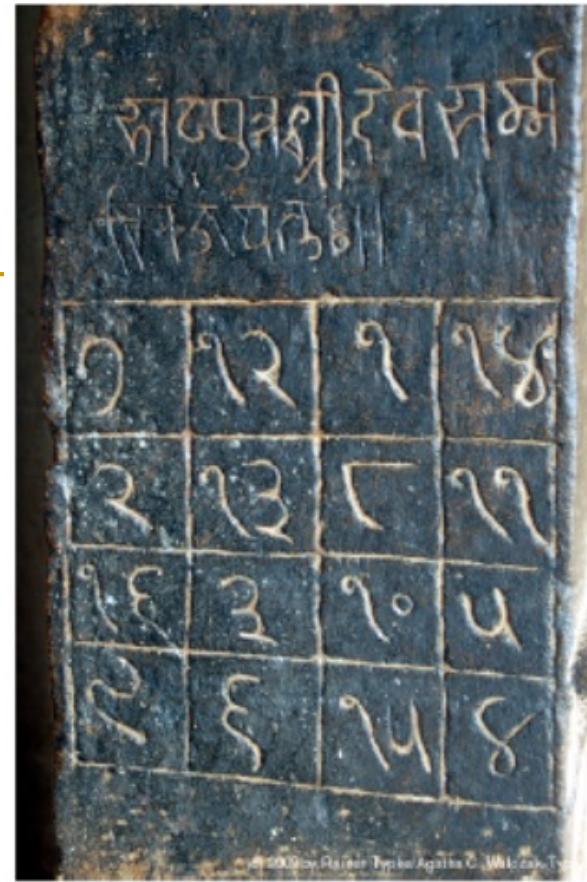 रूदपुत्रश्रीदेवसर्म्म
७ १२ १ १४
२ १३ ८ ११
१६ ३ १० ५
९ ६ १५ ४
© 2009 by Rainer Typke/Agatha C. Walczak-Typ